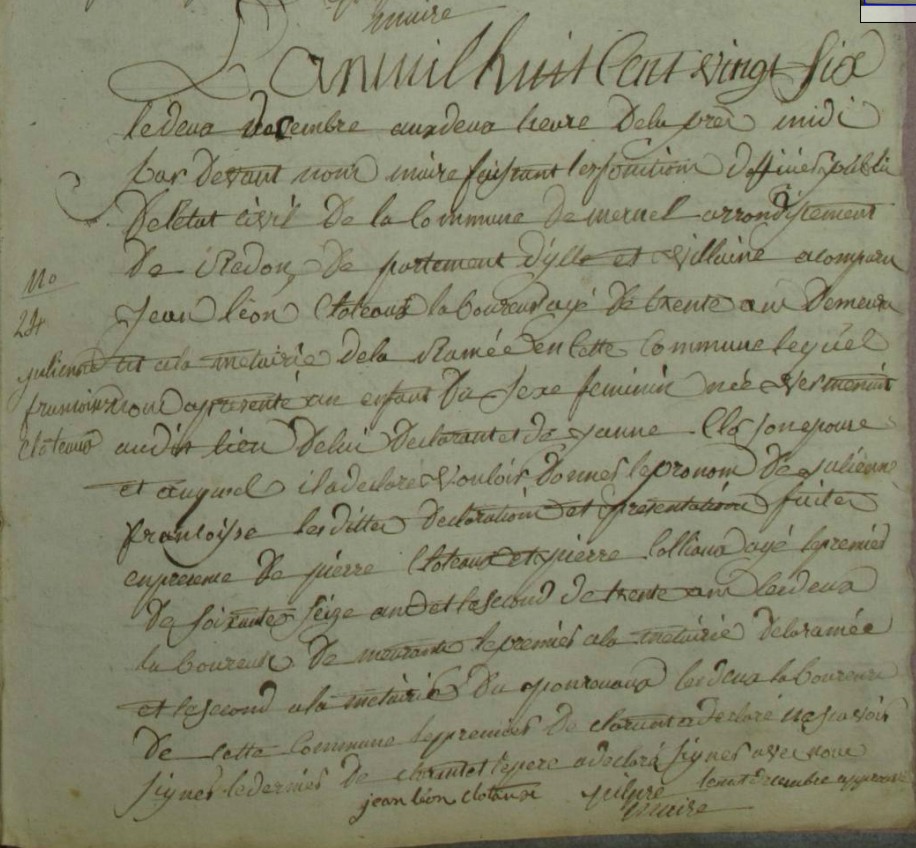 maire
L'an mil huit Cent vingt Six
le deux decembre aux deux heure dela prés midi
par devant nous maire faisant les fonction d'officier public
De létat civil De la Commune de mernel arrondissement
De Redon, De partement d'ylle et villaine a comparu
Jean léon Cloteaux laboureur agé de trente ans Demeura
No
24
julienne
francoise
Cloteaux
nt a la métairie dela Ramée en cette Commune lequel
nous a presenté un enfant du Sexe feminin née
au dit lieu De lui declarant et de Janne son epouse
et auquel il a declaré vouloir donner le pronom De julienne
francoise les dittes declaration et présentation faites
en presence De pierre Cloteaux et pierre Collioux agé le premier
De soixante seize ans et le second de trente ans les deux
laboureur De meurants le premier a la métairie dela ramée
et le second a la métairie Du les deux laboureur
De cette Commune le premier De clarant a declaré ne savoir
signer le dernier De clarant et le pere a declaré signer avec nous
jean léon clotaux
maire
le mot decembre approuvé